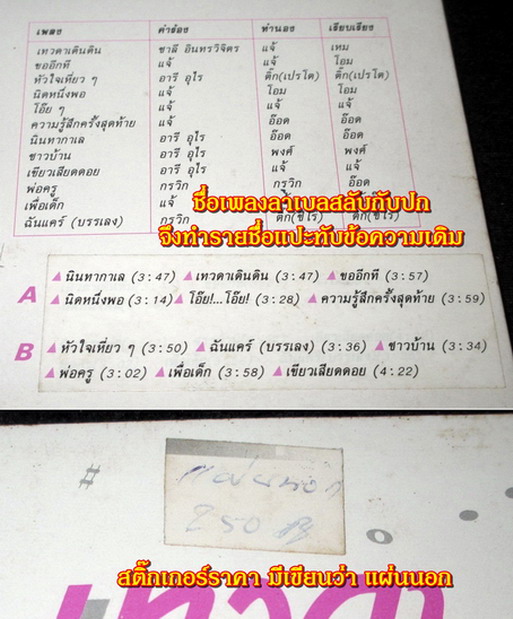 เพลง คำร้อง ทำนอง เรียบเรียง
เทวดาเดินดิน ชาลี อินทรวิจิตร แจ้ เหม
ขออีกที แจ้ แจ้ โอม
หัวใจเหี่ยว ๆ อารี อุไร ติ๊ก(เปรโต) ติ๊ก(เปรโต)
นิดหนึ่งพอ แจ้ โอม โอม
โอ๊ย ๆ แจ้ แจ้ แจ้
ความรู้สึกครั้งสุดท้าย แจ้ อ๊อด อ๊อด
นินทากาเล อารี อุไร อ๊อด อ๊อด
ชาวบ้าน อารี อุไร พงศ์ พงศ์
เขียวเสียดดอย อารี อุไร แจ้ แจ้
พ่อครู กรวิก กรวิก อ๊อด
เพื่อเด็ก แจ้
ฉันแคร์ (บรรเลง) กรวิก
ชื่อเพลงลาเบลสลับกับปก
จึงทำรายชื่อแปะทับข้อความเดิม
A ▲นินทากาเล (3:47) ▲เทวดาเดินดิน (3:47) ▲ขออีกที (3:57)
▲นิดหนึ่งพอ (3:14) ▲โอ๊ย!...โอ๊ย! (3:28) ▲ความรู้สึกครั้งสุดท้าย (3:59)
B ▲หัวใจเหี่ยว ๆ (3:50) ▲ฉันแคร์ (บรรเลง) (3:36) ▲ชาวบ้าน (3:34)
▲พ่อครู (3:02) ▲เพื่อเด็ก (3:58) ▲เขียวเสียดดอย (4:22)
#
แผ่นนอก
250 ฿
สติ๊กเกอร์ราคา มีเขียนว่า แผ่นนอก
เทวดา